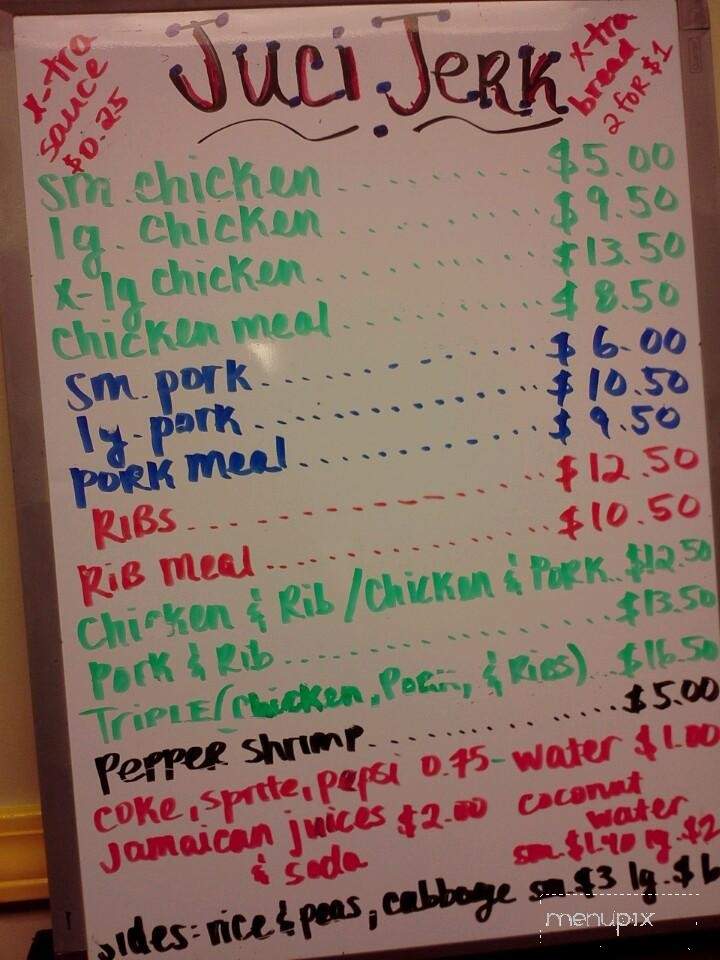 x-tra
sauce
$0.25
Juci Jerk
x-tra
bread
2 for $1
sm. chicken .......... $5.00
lg. chicken .......... $9.50
x-lg chicken .......... $13.50
chicken meal .......... $8.50
sm. pork .......... $6.00
lg. pork .......... $10.50
pork meal .......... $9.50
RIBS .......... $12.50
Rib meal .......... $10.50
Chicken & Rib / Chicken & Pork.. $12.50
Pork & Rib .......... $13.50
TRIPLE (chicken, Pork, & Ribs) ... $16.50
Pepper shrimp .......... $5.00
coke, sprite, pepsi 0.75 - water $1.00
Jamaican juices $2.00
& soda
coconut
water
sm. $1.40 lg. $2
sides: rice & peas, cabbage sm $3 lg. $6
menupix